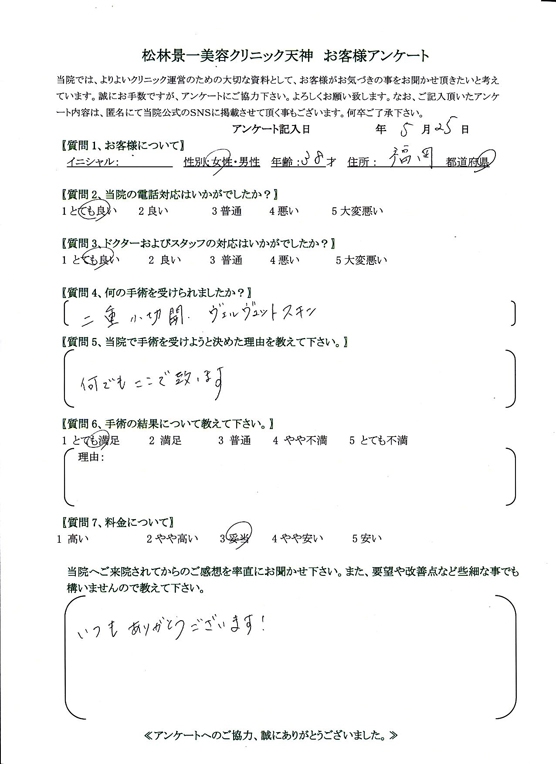 松林景一美容クリニック天神 お客様アンケート
当院では、よりよいクリニック運営のための大切な資料として、お客様がお気づきの事をお聞かせ頂きたいと考え
ています。誠にお手数ですが、アンケートにご協力下さい。よろしくお願い致します。なお、ご記入頂いたアンケ
ート内容は、匿名にて当院公式のSNSに掲載させて頂く事もございます。何卒ご了承下さい。
アンケート記入日 年 5 月 25 日
〖質問1、お客様について〗
イニシャル: 性別:女性・男性 年齢:38才 住所: 福岡 都道府県
〖質問2、当院の電話対応はいかがでしたか?〗
1 とても良い 2 良い 3 普通 4 悪い 5 大変悪い
〖質問3、ドクターおよびスタッフの対応はいかがでしたか?〗
1 とても良い 2 良い 3 普通 4 悪い 5 大変悪い
〖質問4、何の手術を受けられましたか?〗
二重小切開. ヴェルヴェットスキン
〖質問5、当院で手術を受けようと決めた理由を教えて下さい。〗
何でもここで致します
〖質問6、手術の結果について教えて下さい。〗
1 とても満足 2 満足 3 普通 4 やや不満 5 とても不満
理由:
〖質問7、料金について〗
1 高い 2 やや高い 3 妥当 4 やや安い 5 安い
当院へご来院されてからのご感想を率直にお聞かせ下さい。また、要望や改善点など些細な事でも
構いませんので教えて下さい。
いつもありがとうございます!
≪アンケートへのご協力、誠にありがとうございました。≫